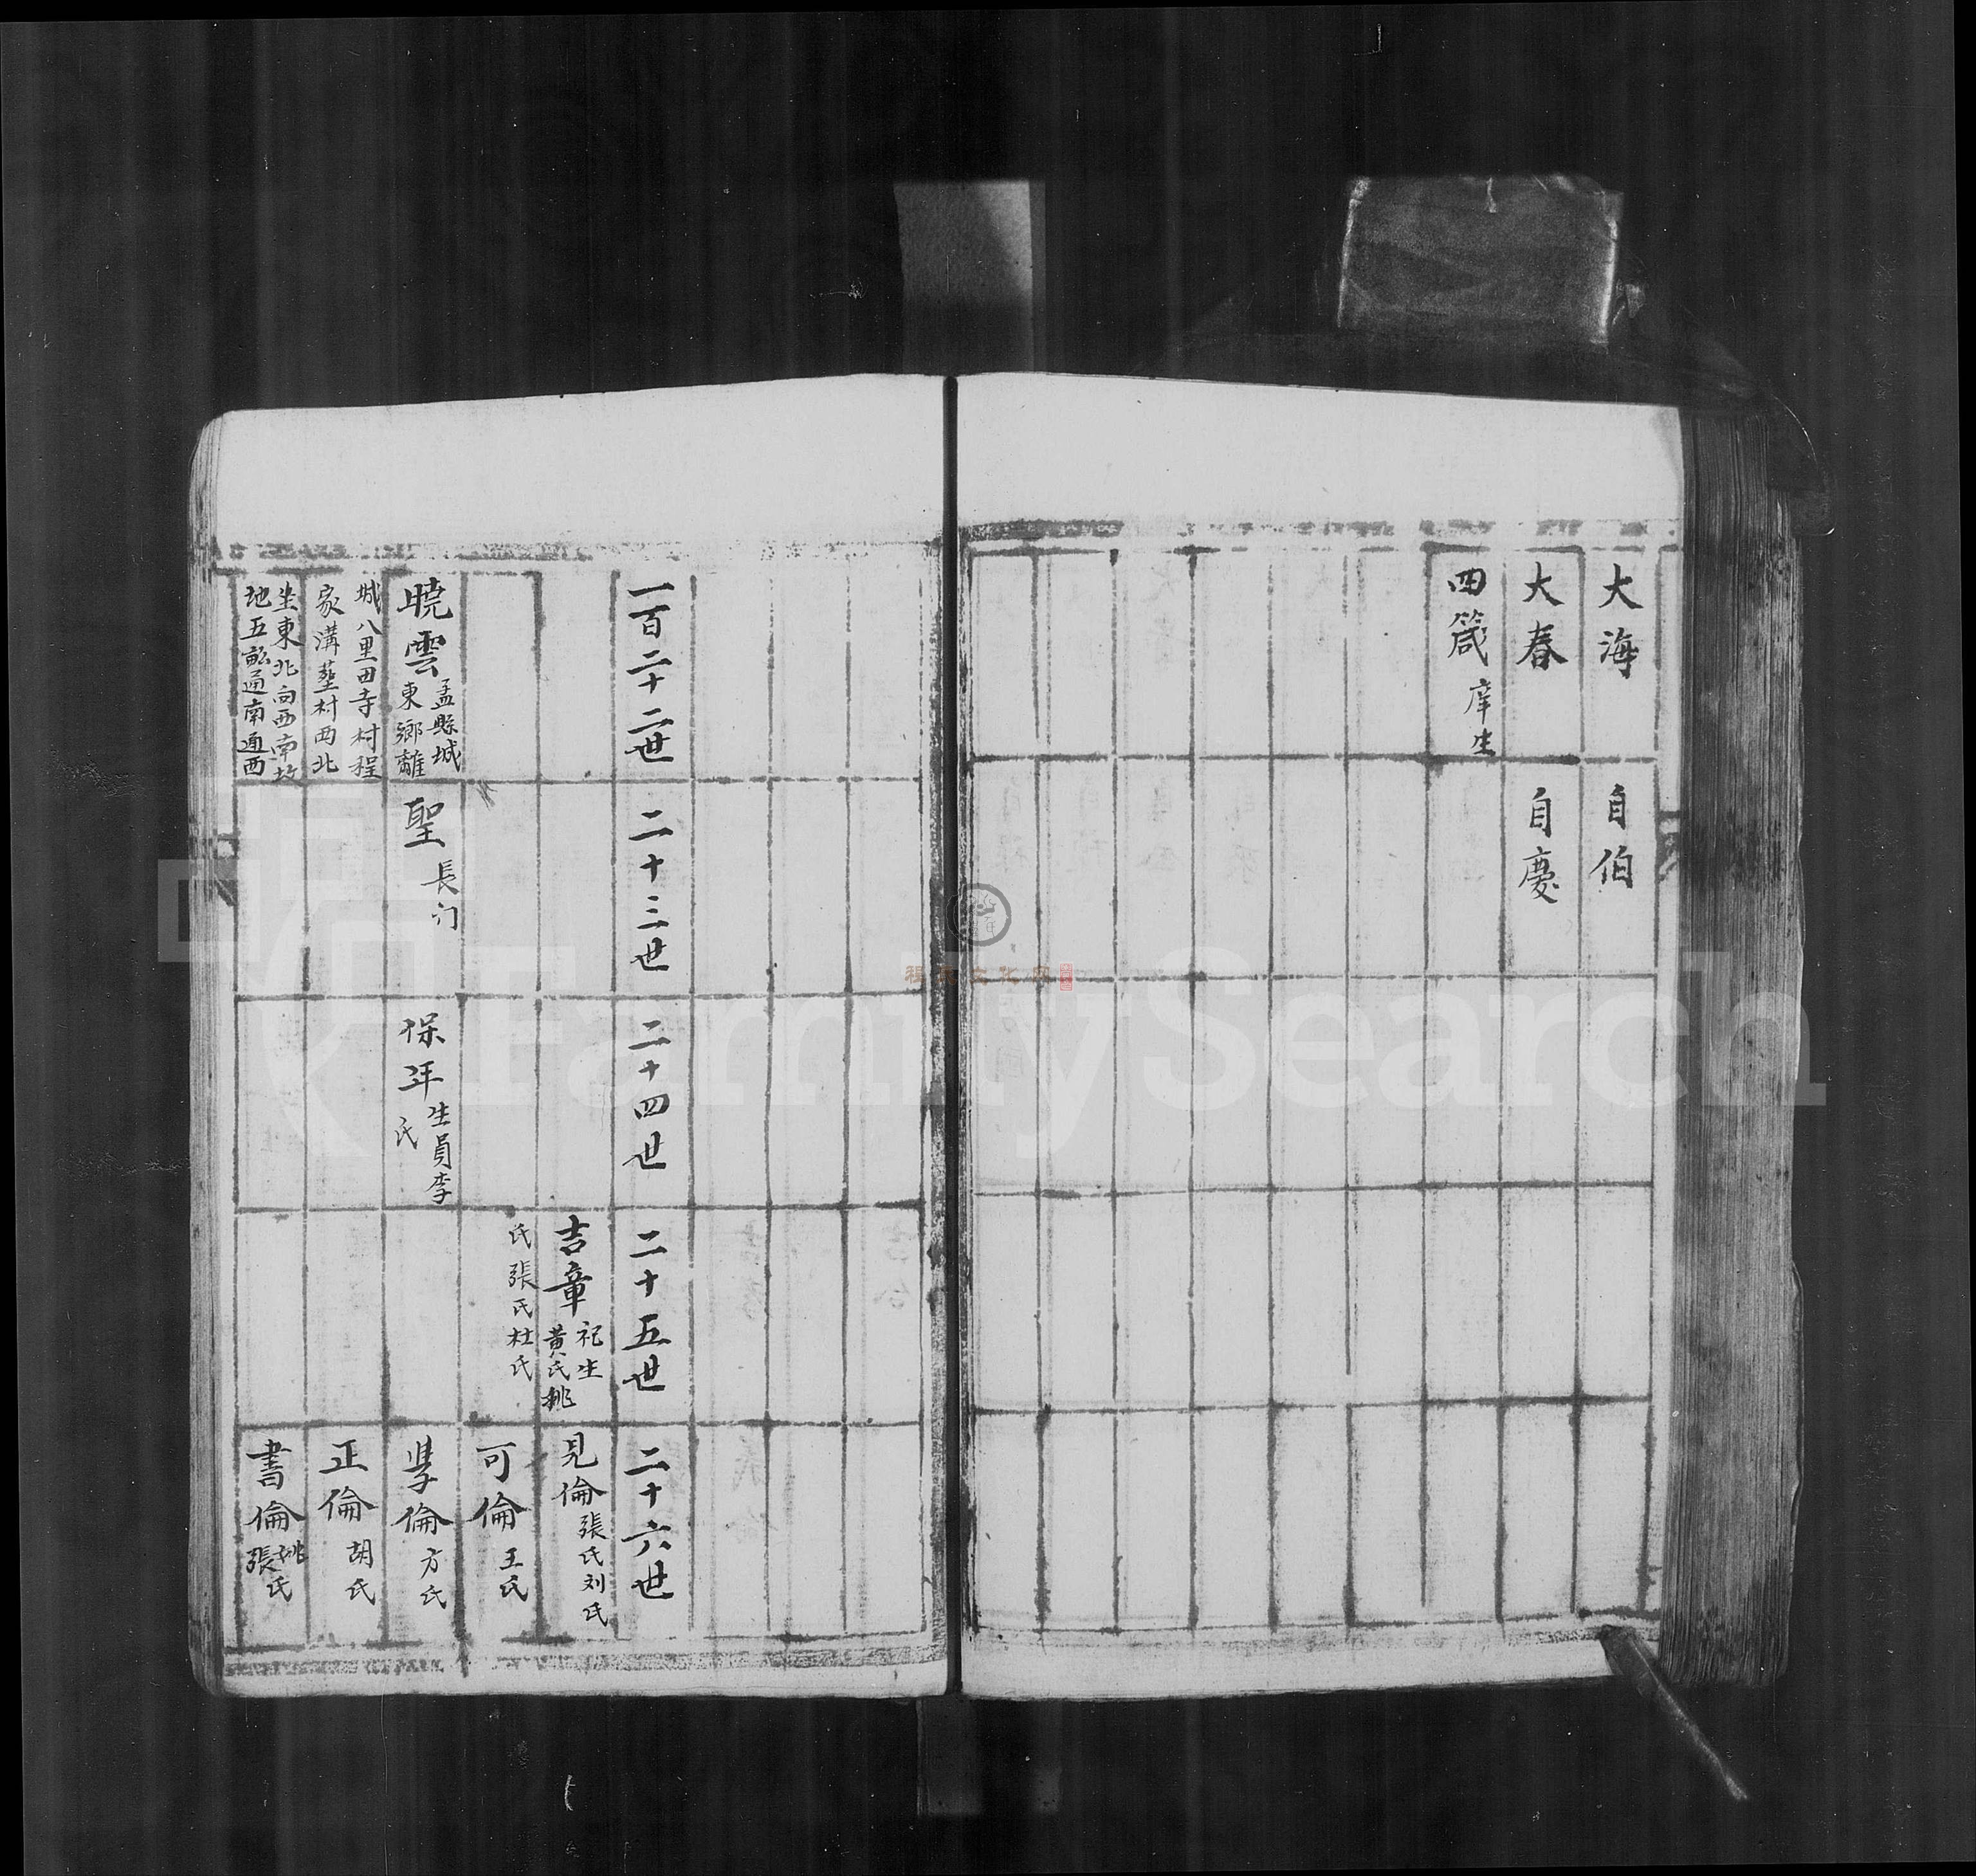 大海
自伯
大春
自慶
四箴 庠生
一百二十二世
二十三世
二十四世
二十五世
二十六世
吉章 祀生
黄氏姚
氏張氏杜氏
見倫 張氏刘氏
可倫 王氏
曉雲 孟縣城
東鄉離
城八里田寺村程
家溝塋村西北
坐東北向西南坟
地五畝通南通西
聖 長门
保年 生員李
氏
學倫 方氏
正倫 胡氏
書倫 姚
張氏
FamilySearch